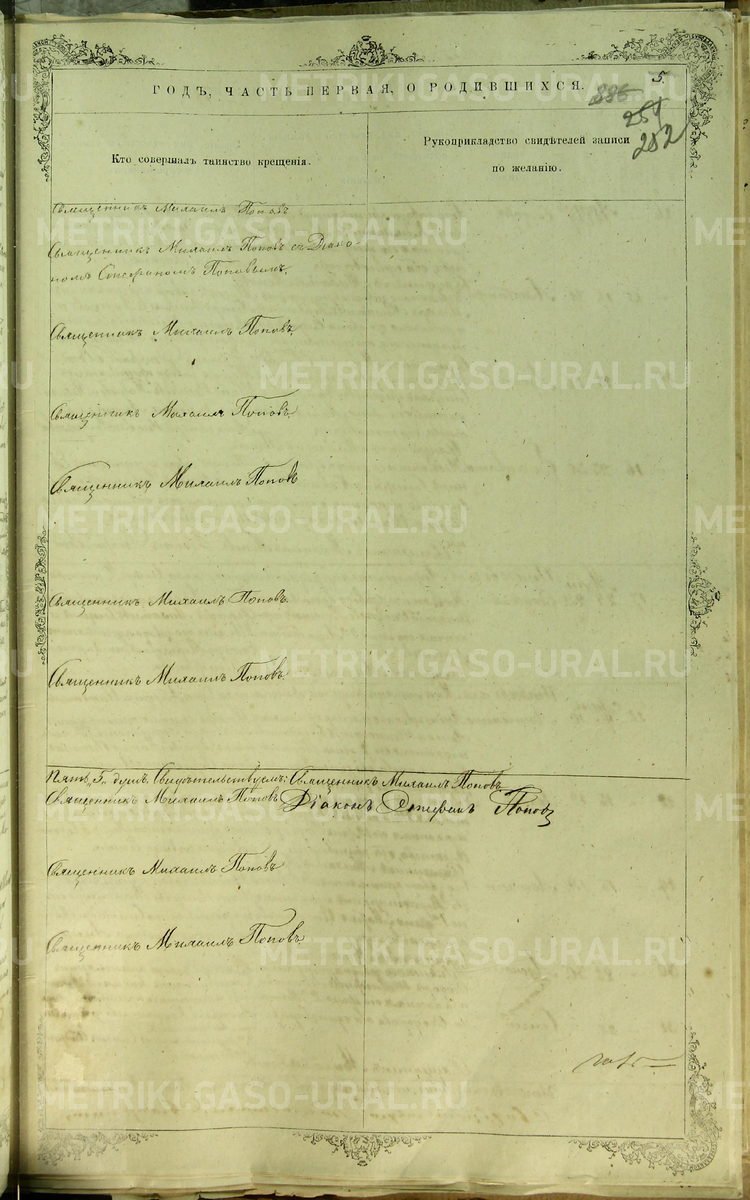 ГОДЪ, ЧАСТЬ ПЕРВАЯ, О РОДИВШИХСЯ.
5
251
252
Кто совершалъ таинство крещенія.
Рукоприкладство свидѣтелей записи
по желанію.
Священникъ Михаилъ Поповъ
Священникъ Михаилъ Поповъ съ Діако-
номъ Поповымъ.
Священникъ Михаилъ Поповъ.
Священникъ Михаилъ Поповъ.
Священникъ Михаилъ Поповъ
Священникъ Михаилъ Поповъ.
Священникъ Михаилъ Поповъ.
5, душъ. Свидѣтельствуемъ: Священникъ Михаилъ Поповъ
Священникъ Михаилъ Поповъ Діаконъ Поповъ
Священникъ Михаилъ Поповъ
Священникъ Михаилъ Поповъ
METRIKI.GASO-URAL.RU